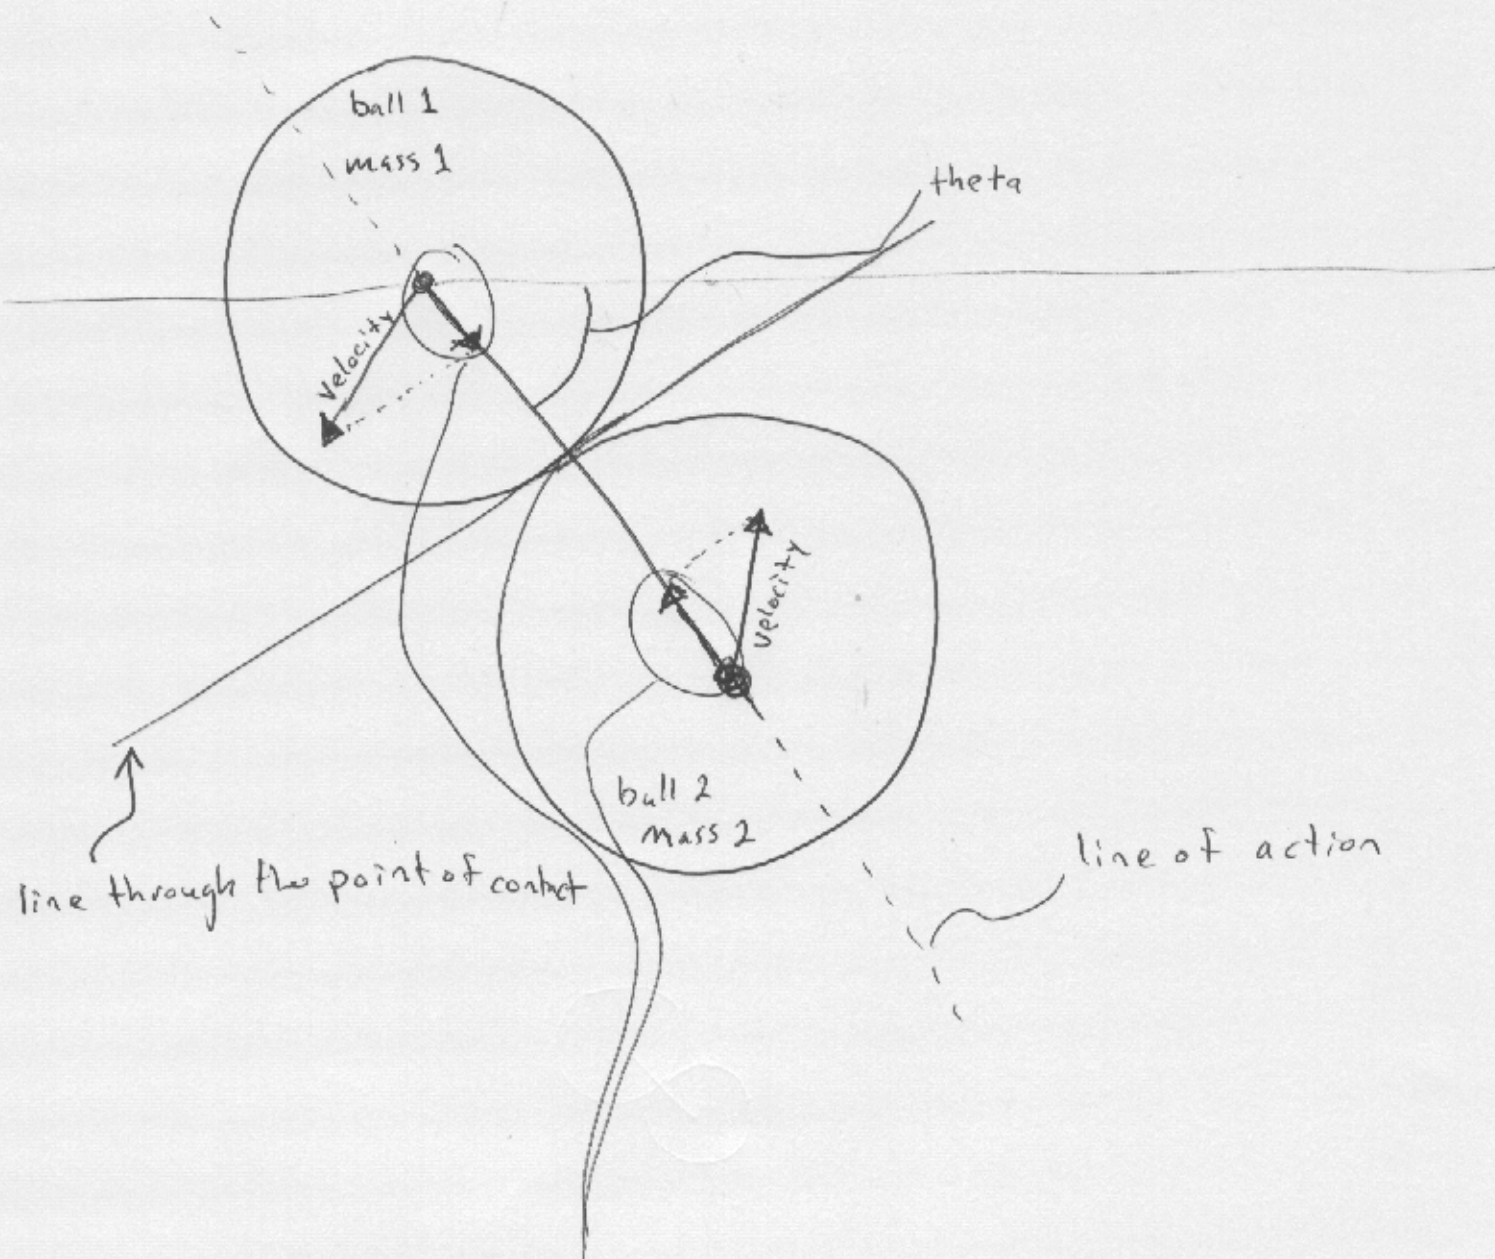 ball 1
mass 1
theta
velocity
velocity
ball 2
mass 2
line of action
line through the point of contact